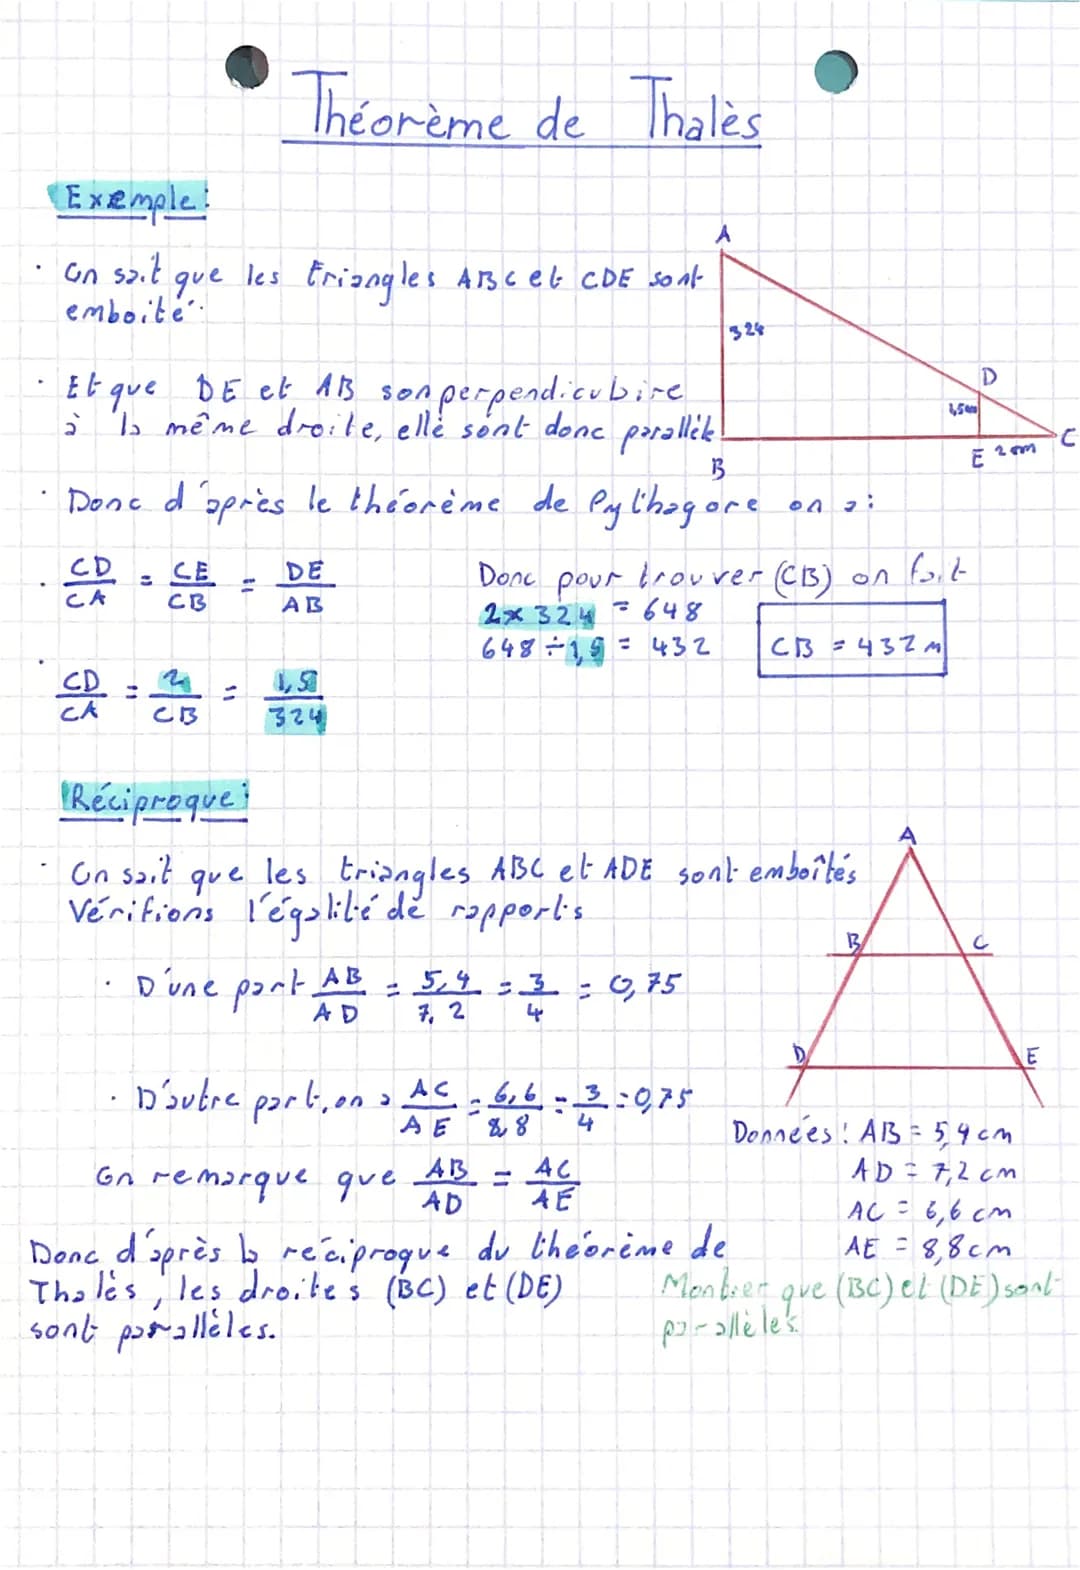 Théorème de Thalès
Exemple:
· On sait que les triangles ABC et CDE sont
emboité.
· Et que DE et AB son perpendiculaire
à la même droite, elle sont donc parallèle
· Donc d'après le théorème de Pythagore on a:
· CD/CA = CE/CB = DE/AB
· CD/CA = 2/CB = 1,5/324
Donc pour trouver (CB) on fait
2 × 324 = 648
648 ÷ 1,5 = 432
CB = 432 m
A
324
D
1,5cm
B
E 2 cm
C
Réciproque:
· On sait que les triangles ABC et ADE sont emboîtés
Vérifions l'égalité de rapports
· D'une part AB/AD = 5,4/7,2 = 3/4 = 0,75
· D'autre part, on a AC/AE = 6,6/8,8 = 3/4 = 0,75
On remarque que AB/AD = AC/AE
Donc d'après la réciproque du théorème de
Thalès, les droites (BC) et (DE)
sont parallèles.
A
B
C
D
E
Données: AB = 5,4 cm
AD = 7,2 cm
AC = 6,6 cm
AE = 8,8 cm
Montrer que (BC) et (DE) sont
parallèles.